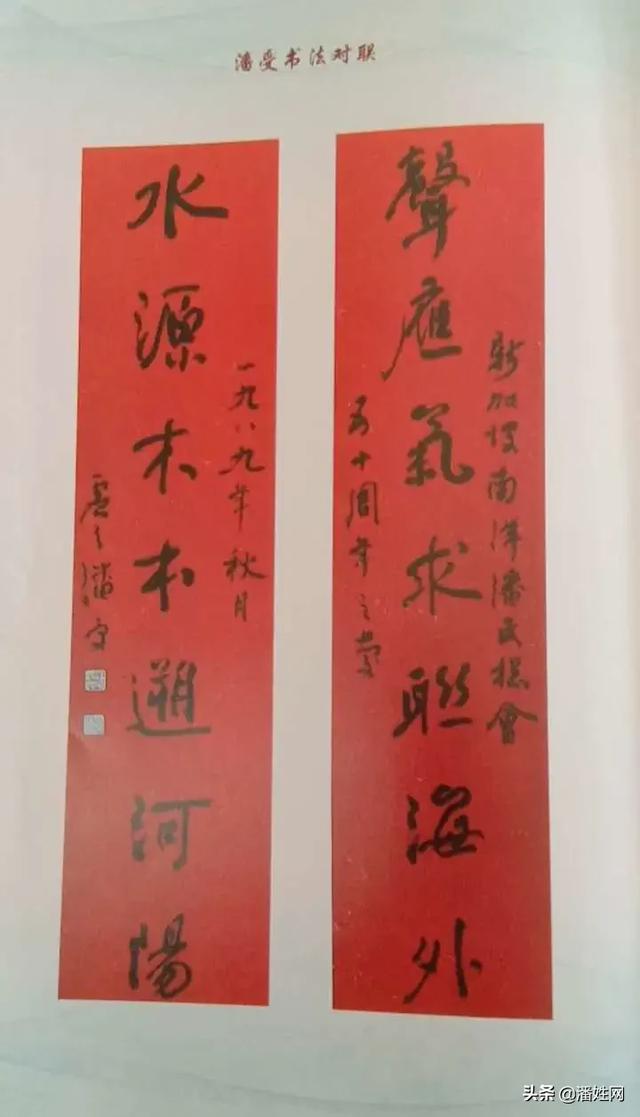 潘受书法对联
新加坡南洋潘氏總會
聲應氣求聯海外
五十周年之慶
一九八九年秋月
水源木本遡河陽
虛之潘受
头条 @潘姓网